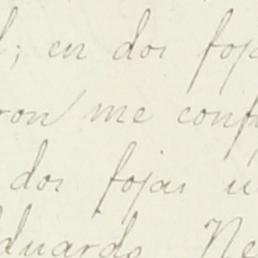 ; en dos foj
ron me conf
dos fojas u
duardo Ne